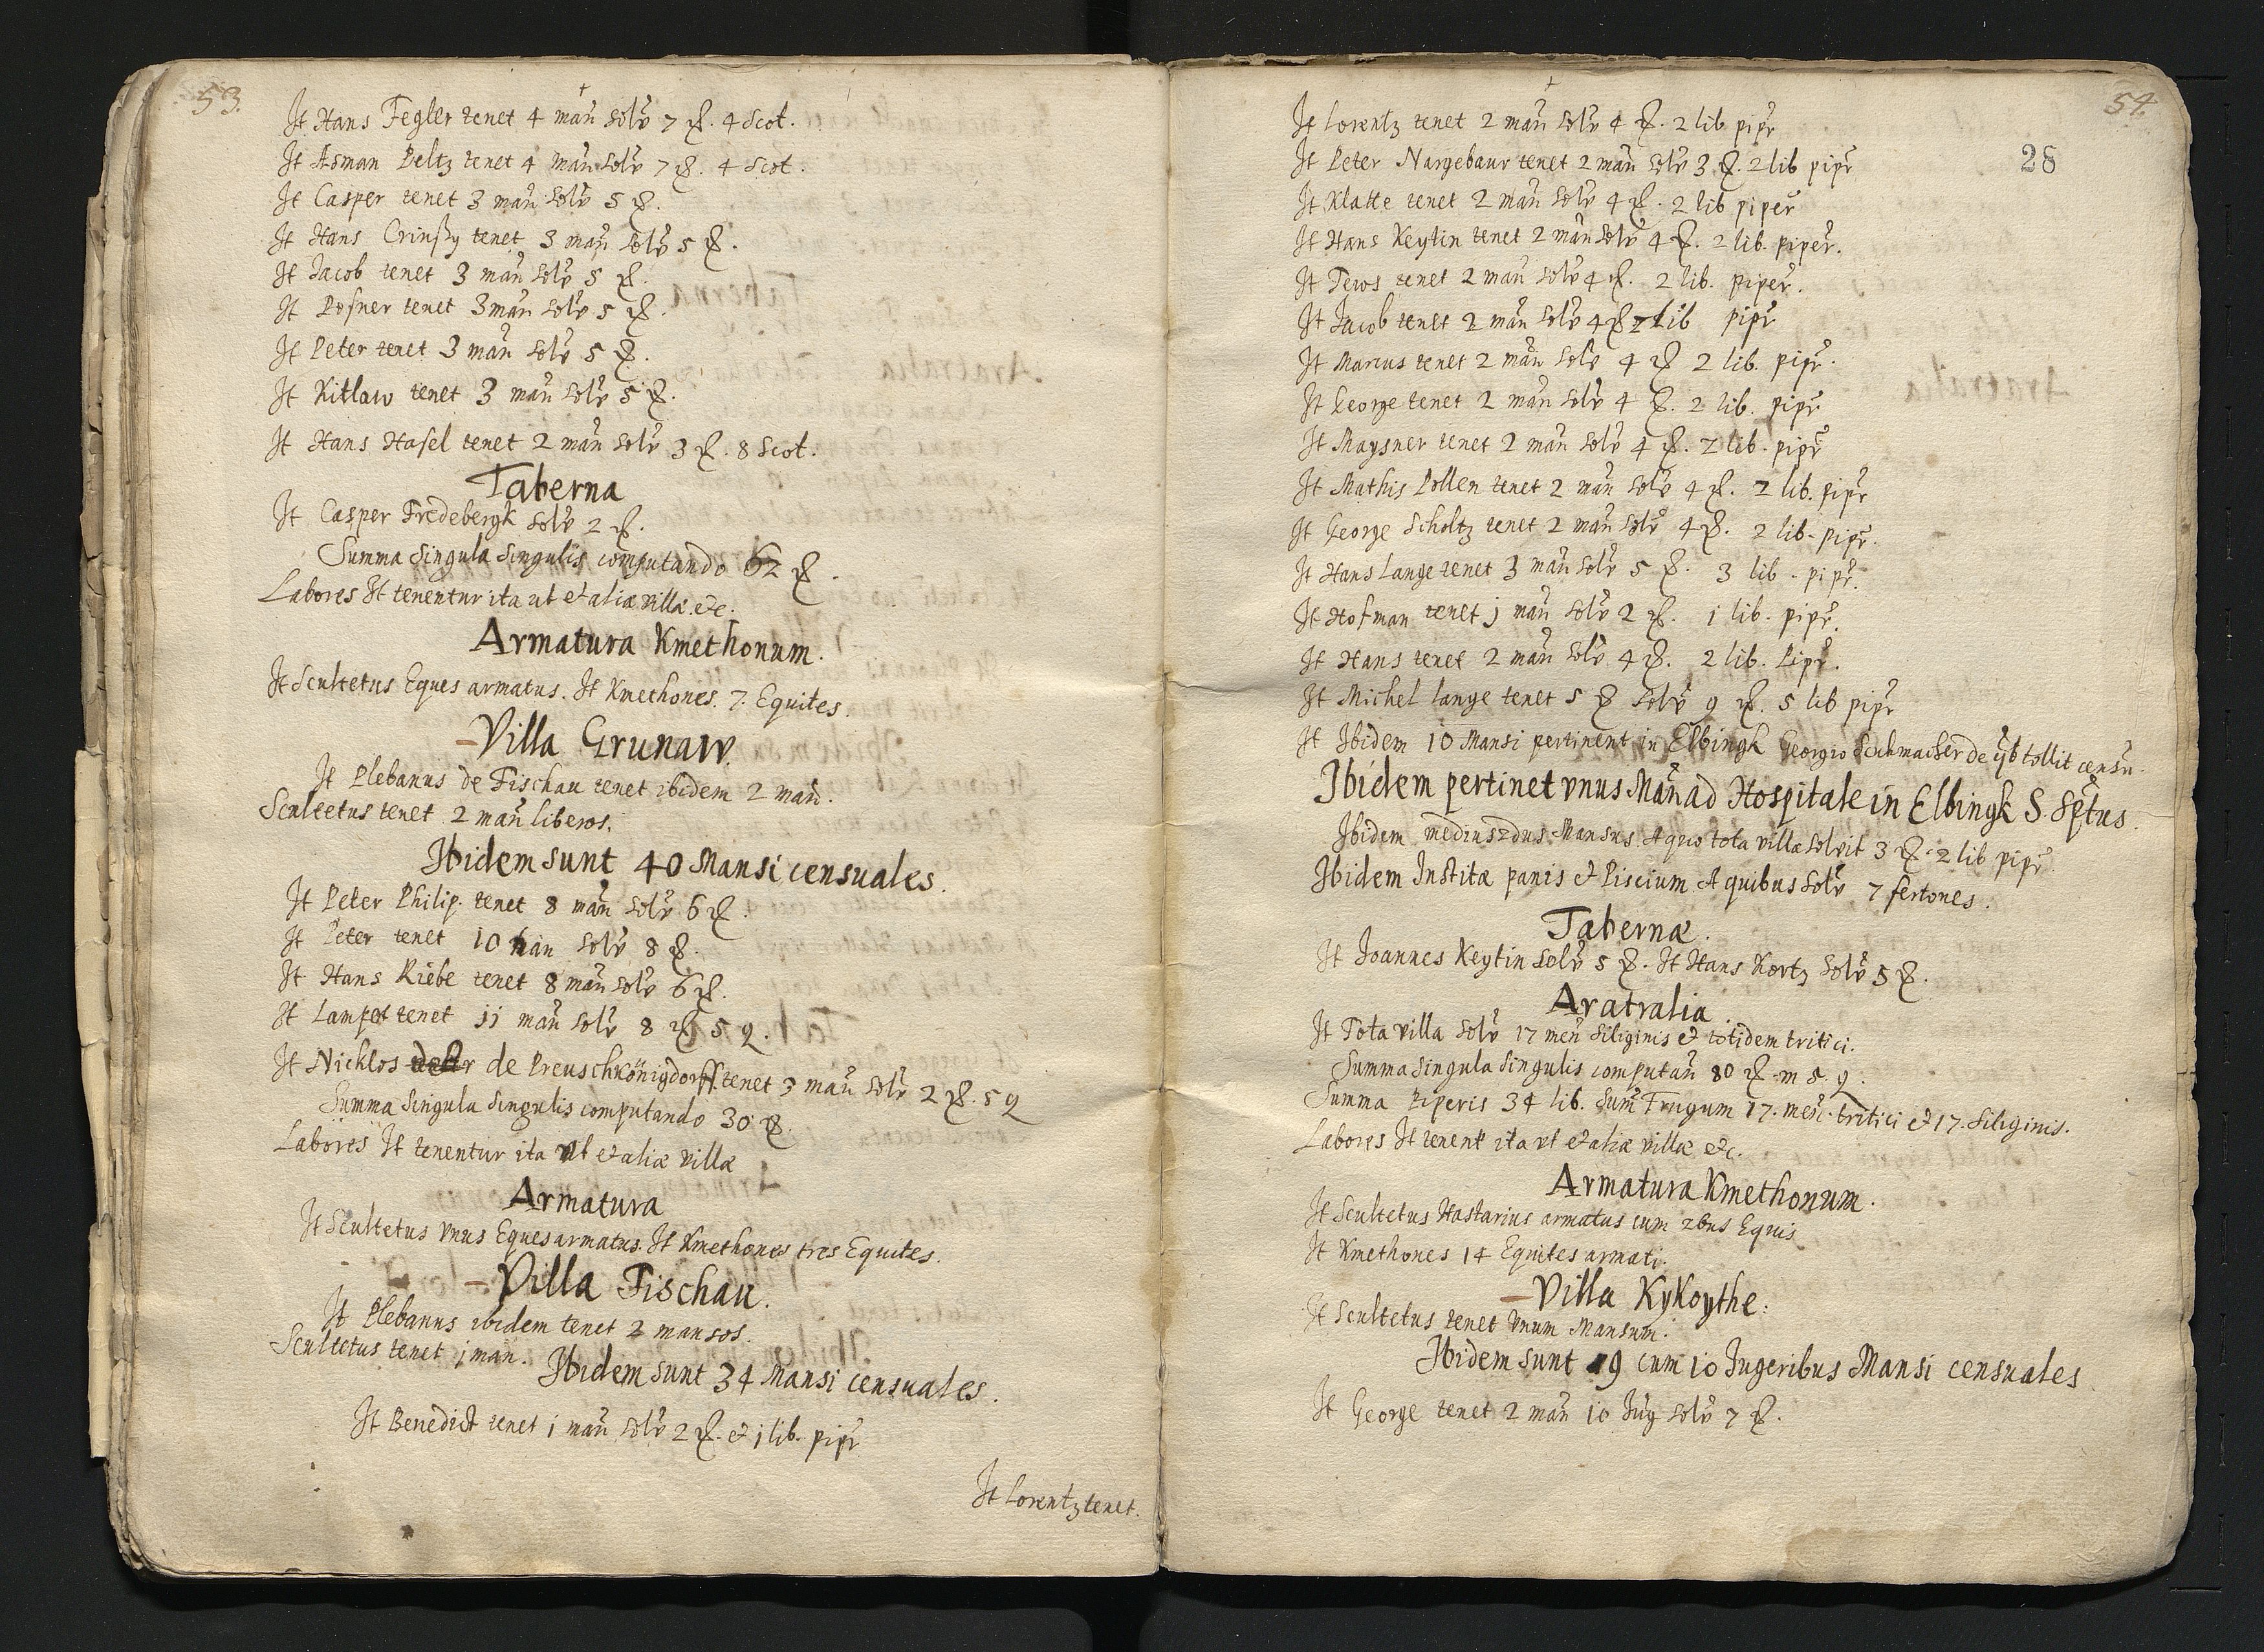 53.
It Hans Fegler tenet 4 man solv 7 ℳ. 4 Scot.
It Asman Peltz tenet 4 man solv 7 ℳ. 4 Scot.
It Casper tenet 3 man solv 5 ℳ.
It Hans tenet 3 man solv 5 ℳ.
It Jacob tenet 3 man solv 5 ℳ.
It Posner tenet 3 man solv 5 ℳ.
It Peter tenet 3 man solv 5 ℳ.
It Kitlaw tenet 3 man solv 5 ℳ.
It Hans Hasel tenet 2 man solv 3 ℳ. 8 Scot.
Taberna
It Casper Fredebergk solv 2 ℳ.
Summa singula singulis computando 62 ℳ.
Labores It tenentur ita ut et aliæ villæ etc.
Armatura Kmethonum.
It Scultetus Eques armatus. It Kmethones. 7. Equites.
Villa Grunaw.
It Plebanus de Fischau tenet ibidem 2 man.
Scultetus tenet 2 man liberos.
Ibidem sunt 40 Mansi censuales.
It Peter Philip. tenet 8 man solv 6 ℳ.
It Peter tenet 10 man solv 8 ℳ.
It Hans Riebe tenet 8 man solv 6 ℳ.
It Lampet tenet 11 man solv 8 ℳ 5 q.
It Nicklos de Preuschkönigdorff tenet 3 man solv 2 ℳ. 5 q
Summa singula singulis computando 30 ℳ.
Labores It tenentur ita ut et aliæ villæ
Armatura
It Scultetus vnus Eques armatus. It Kmethones tres Equites.
Villa Fischau.
It Plebanus ibidem tenet 2 mansos.
Scultetus tenet j man.
Ibidem sunt 34 Mansi censuales.
It Benedict tenet 1 man solv 2 ℳ. et j lib. pipr
It Lorentz tenet.
54.
28
It Lorentz tenet 2 man solv 4 ℳ. 2 lib pipr
It Peter Nargebaur tenet 2 man solv 3 ℳ. 2 lib pipr
It Klatte tenet 2 man solv 4 ℳ. 2 lib piper
It Hans Keytin tenet 2 man solv 4 ℳ. 2 lib. piper.
It Tews tenet 2 man solv 4 ℳ. 2 lib. piper.
It Jacob tenet 2 man solv 4 ℳ 2 lib pipr
It Marcus tenet 2 man solv 4 ℳ 2 lib. pipr.
It George tenet 2 man solv 4 ℳ. 2 lib. pipr
It Maysner tenet 2 man solv 4 ℳ. 2 lib. pipr
It Mathis Pollen tenet 2 man solv 4 ℳ. 2 lib. pipr
It George Scholtz tenet 2 man solv 4 ℳ. 2 lib. pipr.
It Hans Lange tenet 3 man solv 5 ℳ. 3 lib. pipr.
It Hofman tenet j man solv 2 ℳ. 1 lib. pipr.
It Hans tenet 2 man solv 4 ℳ. 2 lib. pipr.
It Michel lange tenet 5 ℳ solv 9 ℳ. 5 lib pipr
It Ibidem 10 Mansi pertinent in Elbingk Georgio Schmacher de qb tollit censu.
Ibidem pertinet vnus Man ad Hospitale in Elbingk S. Sptus.
Ibidem medius Mansus. A quo tota villa solvit 3 ℳ. 2 lib pipr.
Ibidem Institæ panis et Piscium A quibus solv 7 fertones.
Tabernæ.
It Joannes Keytin solv 5 ℳ. It Hans Kortz solv 5 ℳ.
Aratralia.
It Tota villa solv 17 men siliginis et totidem tritici.
Summa singula singulis computan 80 ℳ. m 5. q.
Summa Piperis 34 lib. Sum Frugum 17. men. tritici et 17. siliginis.
Labores It tenent ita ut et aliæ villæ etc.
Armatura Kmethonum.
It Scultetus Hastarius armatus cum 2bus Equis
It Kmethones 14 Equites armati.
Villa Kykoythe.
It Scultetus tenet vnum Mansum.
Ibidem sunt 19 cum 10 Jugeribus Mansi censuales
It George tenet 2 man 10 Jug solv 7 ℳ.